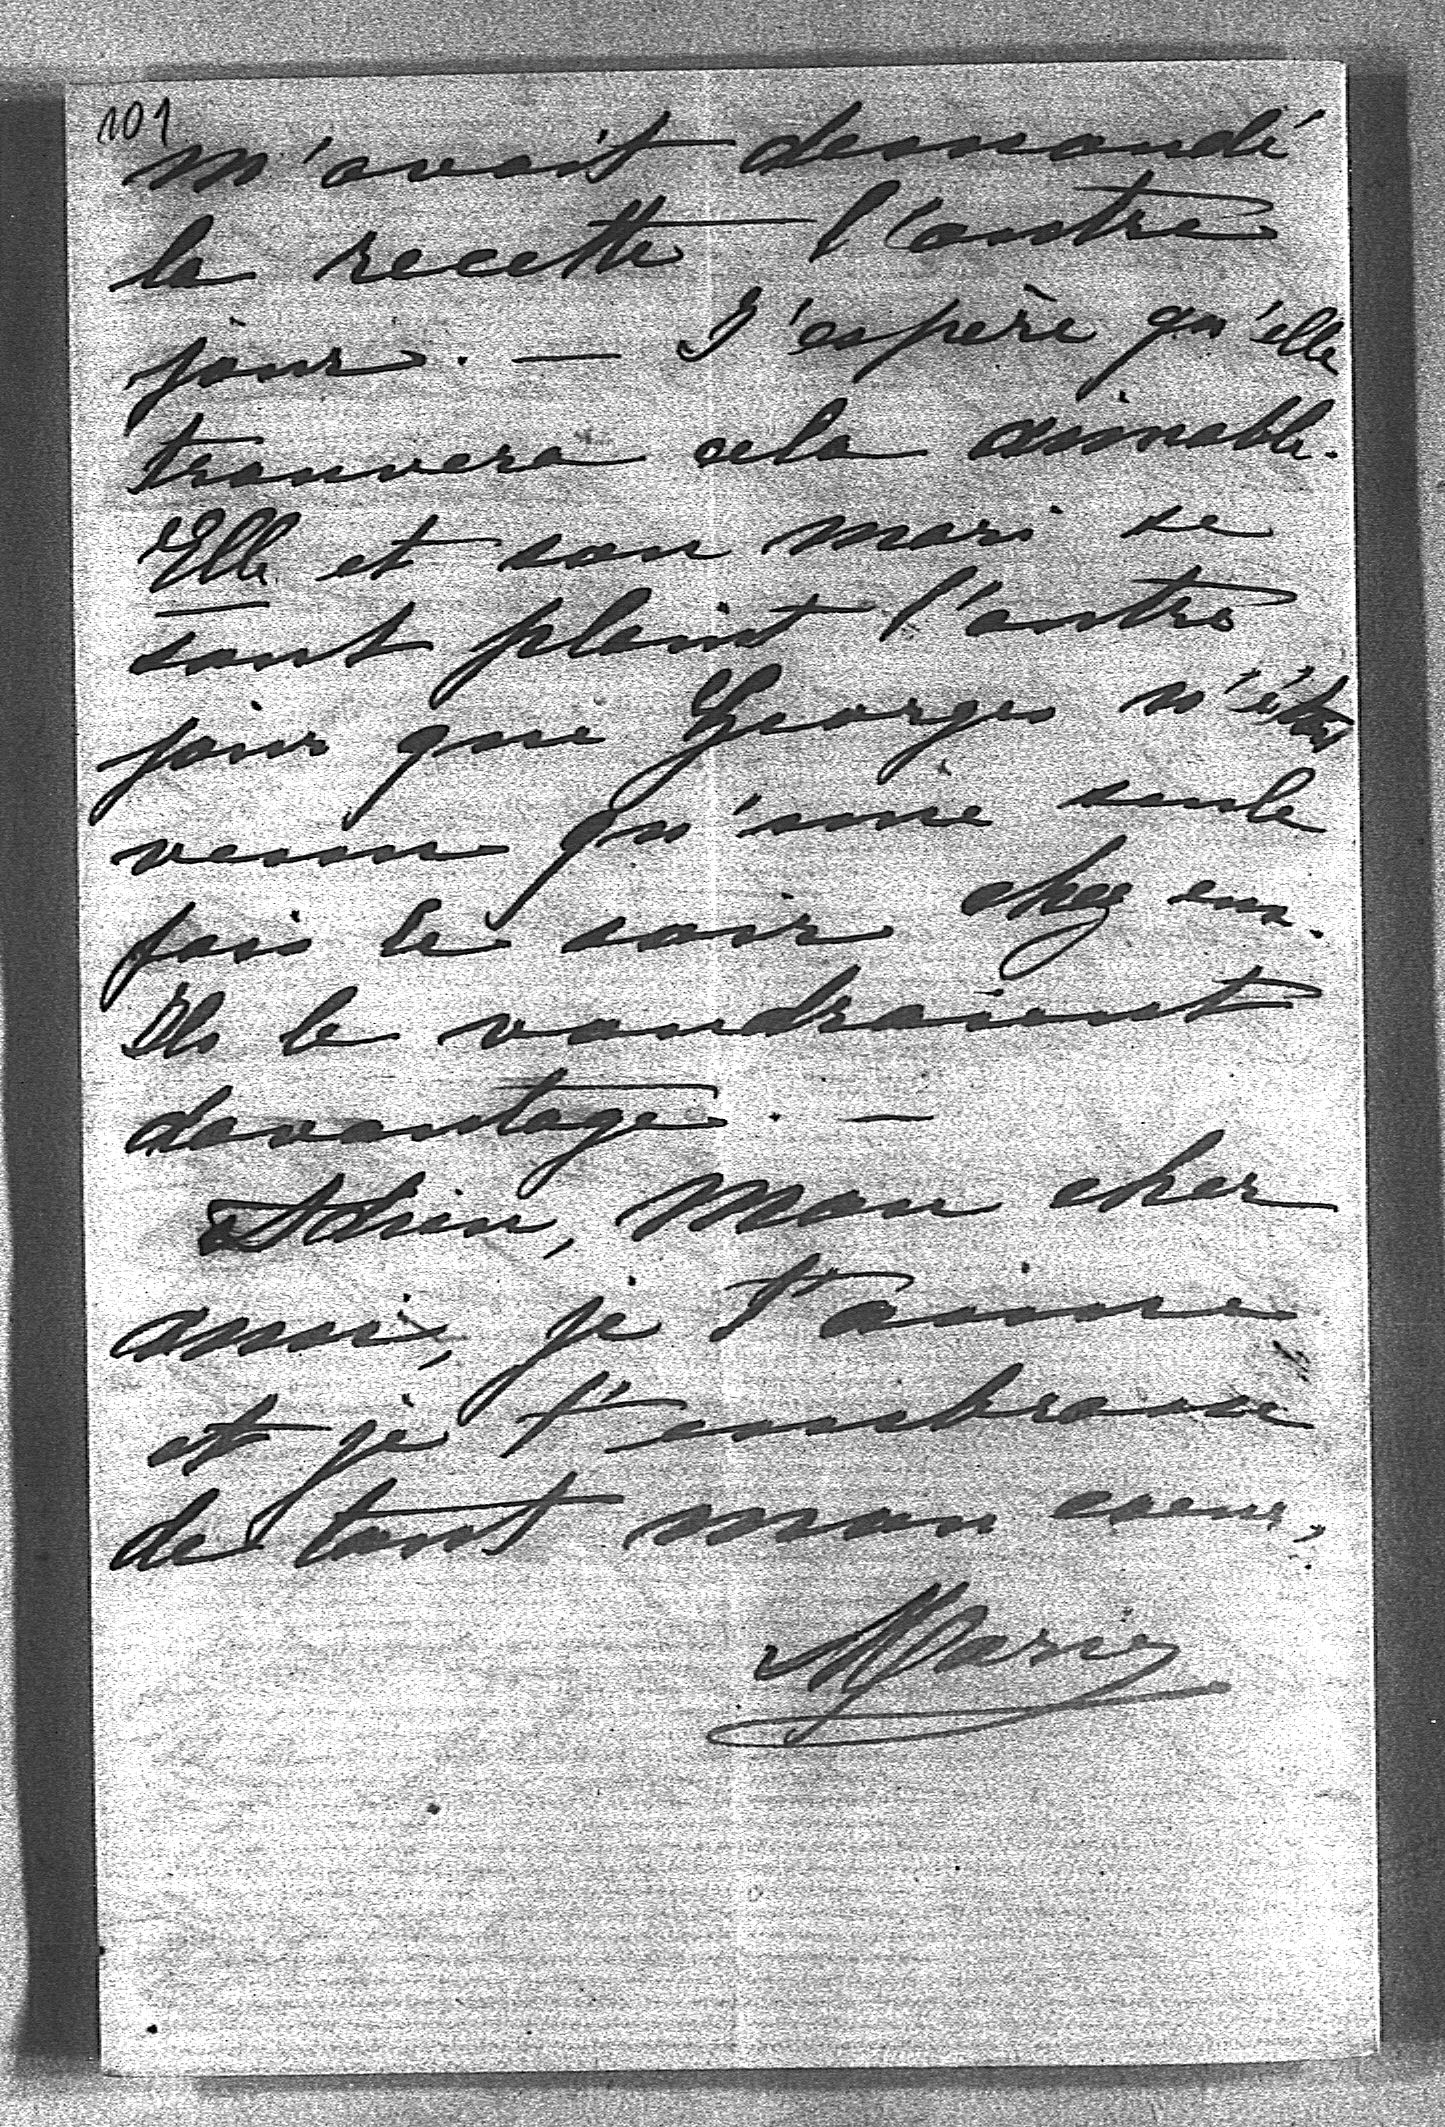 101
m'avait demandé
la recette l'autre
jour. — J'espère qu'elle
trouvera cela aimable.
Elle et son mari se
sont plaint l'autre
jour que Georges n'était
venu qu'une seule
fois le soir chez eux.
Ils le voudraient
davantage. —
Adrien, mon cher
ami, je t'aime
et je t'embrasse
de tout mon coeur,
Marie